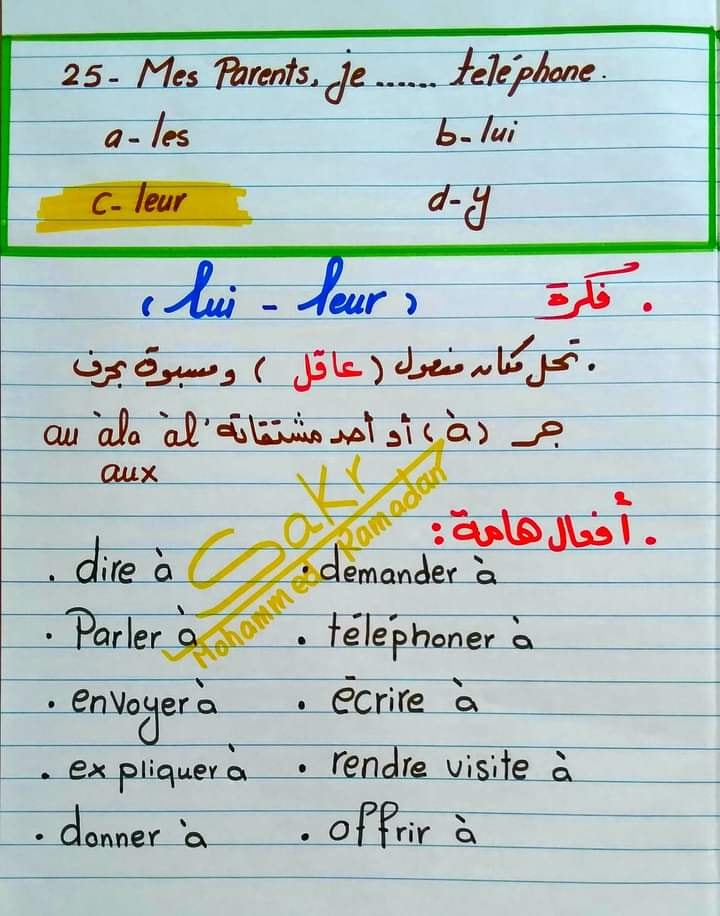 25- Mes Parents, je ...... teléphone.
a- les b- lui
c- leur d- y
. فكرة ( lui - leur )
. تحل مكان مفعول ( عاقل ) ومسبوق بحرف
جر (à) أو أحد مشتقاته au àla àl'
aux
Sakr
Mohammed Ramadan
. أفعال هامة :
. dire à . demander à
. Parler à . téléphoner à
. envoyer à . écrire à
. expliquer à . rendre visite à
. donner à . offrir à